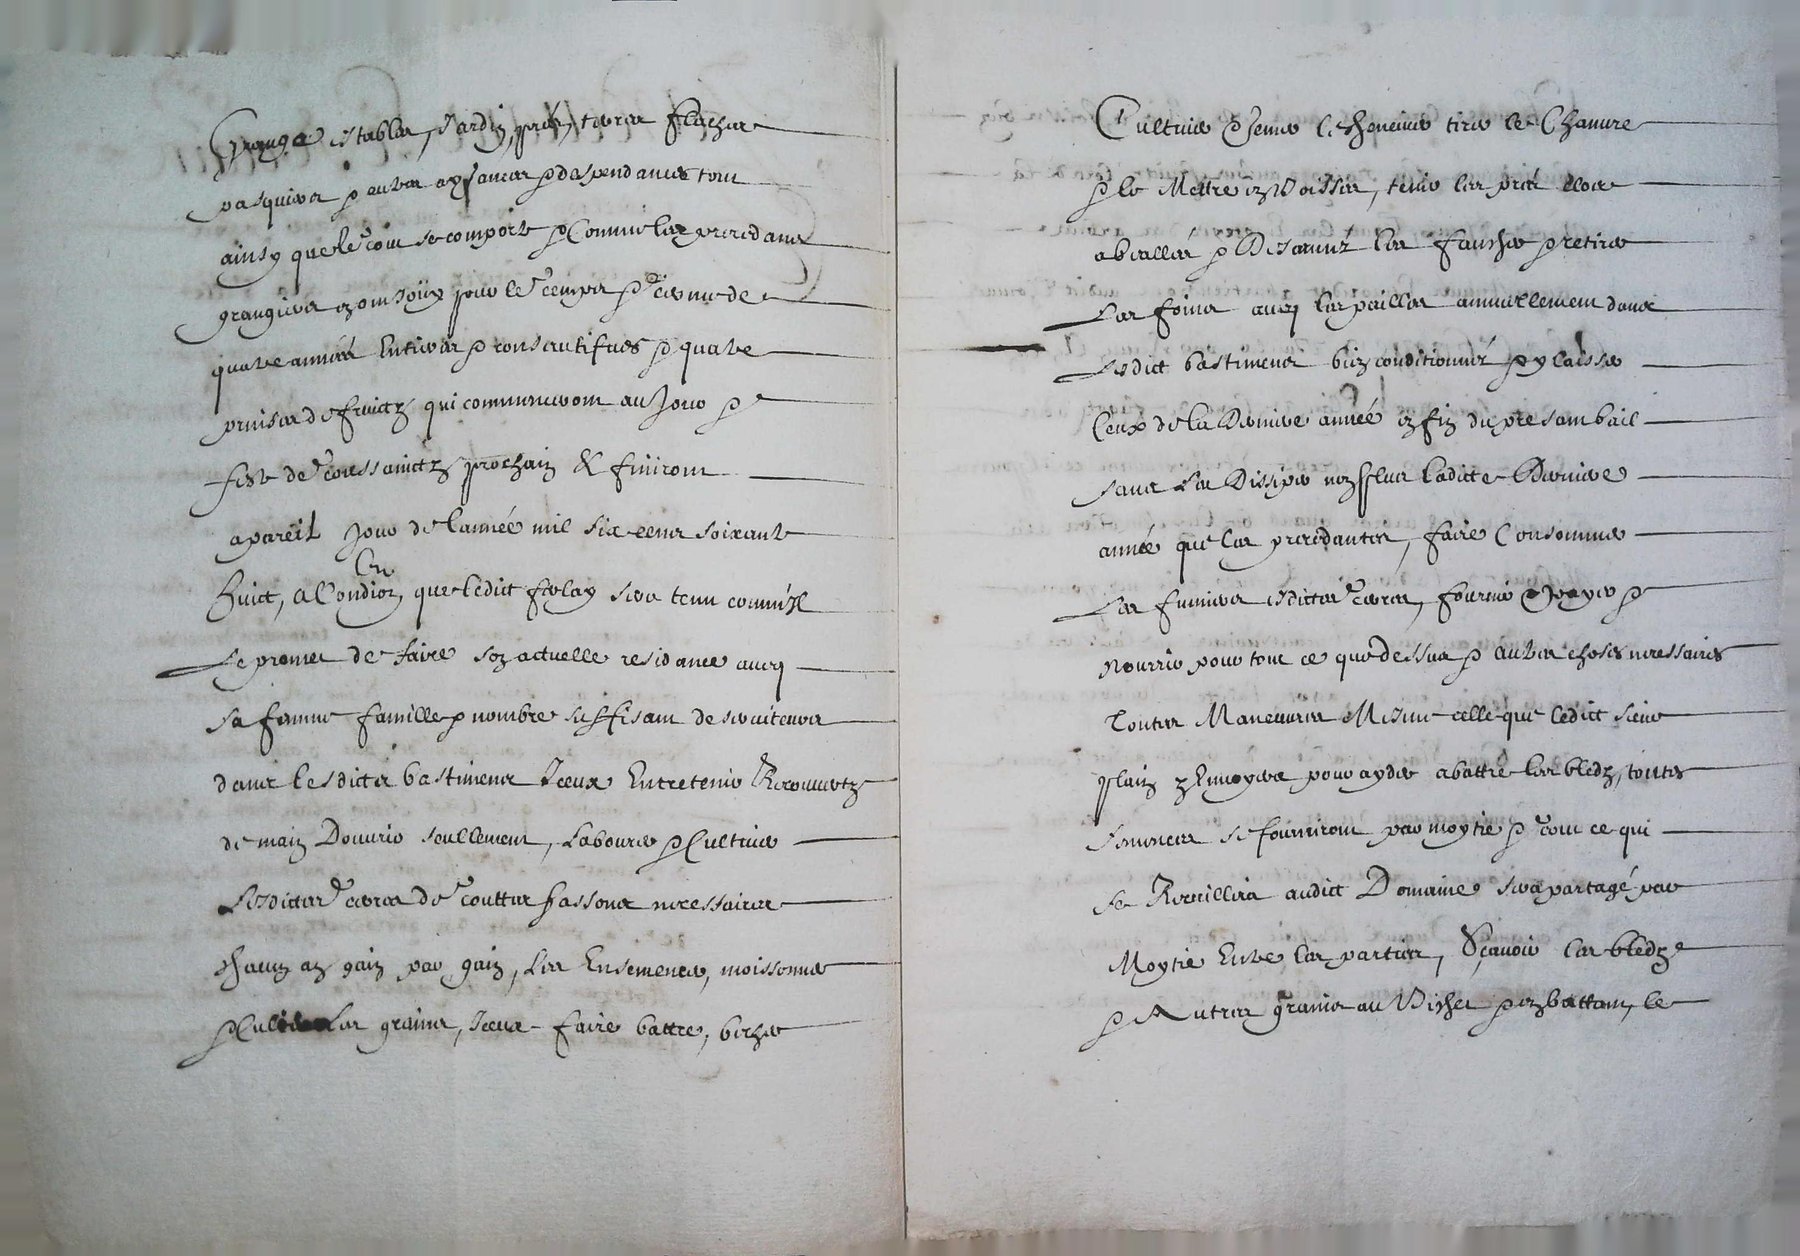 Grange estables, Jardin, prés, terres flaches
pasquiers et autres aysances et despendances tout
ainsy que le tout se comporte et comme les precedans
grangiers en ont jouy pour le temps et terme de
quatre années entieres et consecutifves et quatre
prinses de fruictz qui commenceront au jour et
feste de toussainctz prochain & finiront
a pareil jour de l'année mil six cent soixante
huict, a Condition, que ledict sera tenu comm'il
le promet de faire son actuelle residance avecq
sa femme famille et nombre suffisant de serviteurs
dans lesdicts bastimens Iceux Entretenir Recouvertz
de main Douvrier seullement, Labourer et Cultiver
Lesdictes terres de touttes fassons necessaires
chacun an gain par gain, Les Ensemencer, moissonner
et les grains, Iceux faire battre, becher
Cultiver et semer le chenevier tirer le Chanvre
et le Mettre en, tenir les prés clos
et les faucher et retirer
Les foins avecq les pailles annuellement dans
Lesdict bastimens bien conditionné et y laisser
Ceux de la Derniere année en fin du present bail
sans Les Dissiper non plus ladicte Derniere
année que les precedantes, faire Consommer
Les fumiers esdictes terres, fournir et payer et
nourrir pour tout ce que dessus et autres choses necessaires
Touttes Maneuvres Mesme celle que ledict sieur
Plain Envoyera pour ayder a battre les bledz, touttes
semences se fourniront par moytie et tout ce qui
se Recuillira audict Domaine sera partagé par
Moytie Entre les parties, Sçavoir les bledz
et Autres grains au Bichet et en battant, le